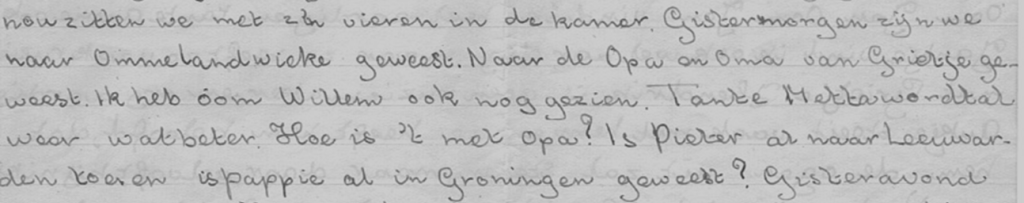 nou zitten we met z'n vieren in de kamer. Gistermorgen zijn we
naar Ommelandwieke geweest. Naar de Opa en Oma van Grietje ge-
weest. Ik heb oom Willem ook nog gezien. Tante Hetta wordt al
weer wat beter. Hoe is 't met Opa? Is Pieter al naar Leeuwar-
den toe en is pappie al in Groningen geweest? Gisteravond